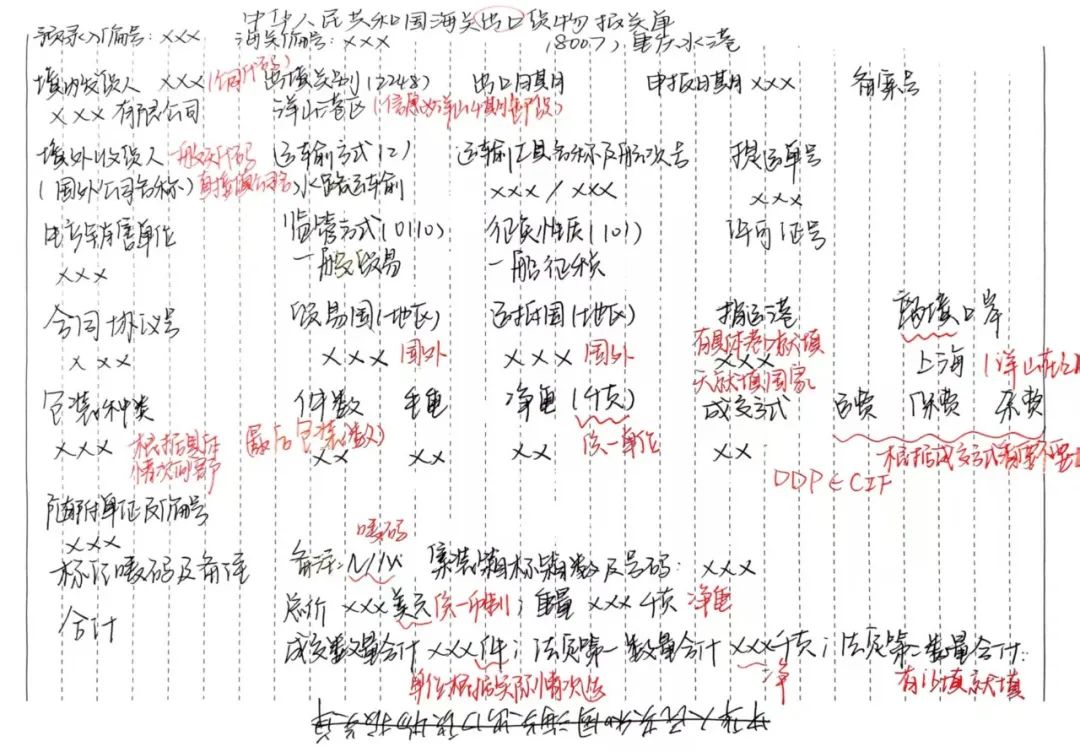 中华人民共和国海关出口货物报关单
预录入编号：xxx 海关编号：xxx (8007)重庆水港
境内发货人 xxx 出境关别(2248) 出口日期 申报日期 xxx 备案号
xxx 有限公司 洋山港区
境外收货人 一般无代码 运输方式(2) 运输工具名称及航次号 提运单号
(国外公司名称) 直接填公司名 水路运输 xxx / xxx xxx
生产销售单位 监管方式(0110) 征免性质(101) 许可证号
xxx 一般贸易 一般征税
合同协议号 贸易国(地区) 运抵国(地区) 指运港 离境口岸
x xx xxx 国外 xxx 国外 有具体港口就填 xxx 上海
无就填国家
包装种类 件数 毛重 净重 (千克) 成交方式 运费 保费 杂费
xxx 根据具体 (最后包装件数) xx xx xx 统一单位 xx
DDP∈CIF
随附单证及编号
xxx
唛码
标记唛码及备注 备注：N/M 集装箱标箱数及号码：xxx
合计 总价 xxx 美元 统一币制；重量 xxx 千克 净重
成交数量合计 xxx件；法定第一数量合计 xxx千克；法定第二数量合计：
单位根据实际情况选 净 有必填就填
中华人民共和国海关出口货物报关单